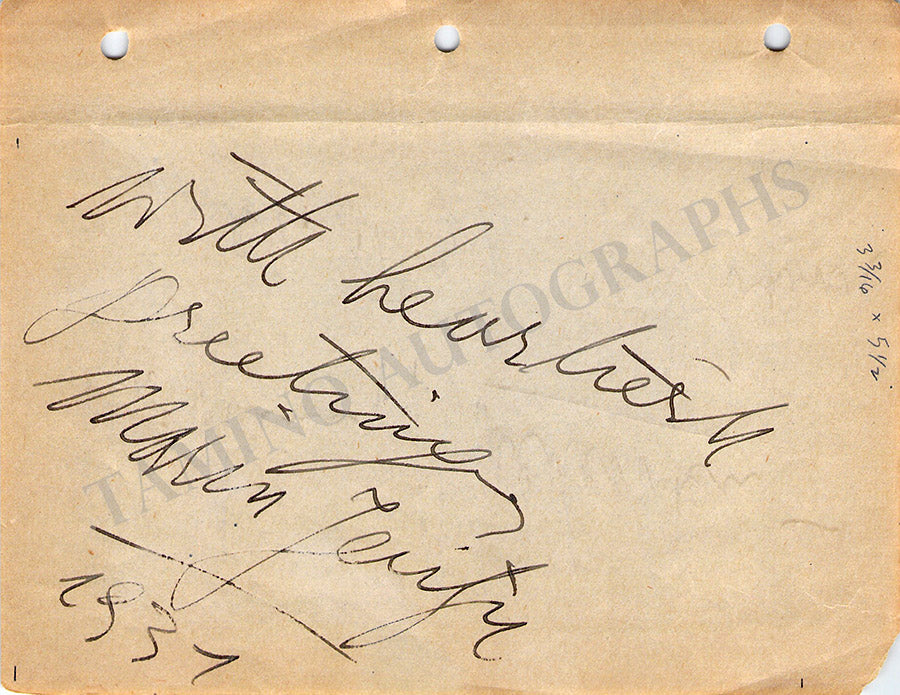 With heartiest
greetings
Maria Jeritza
1931
TAMINO AUTOGRAPHS
3 3/16 x 5 1/2